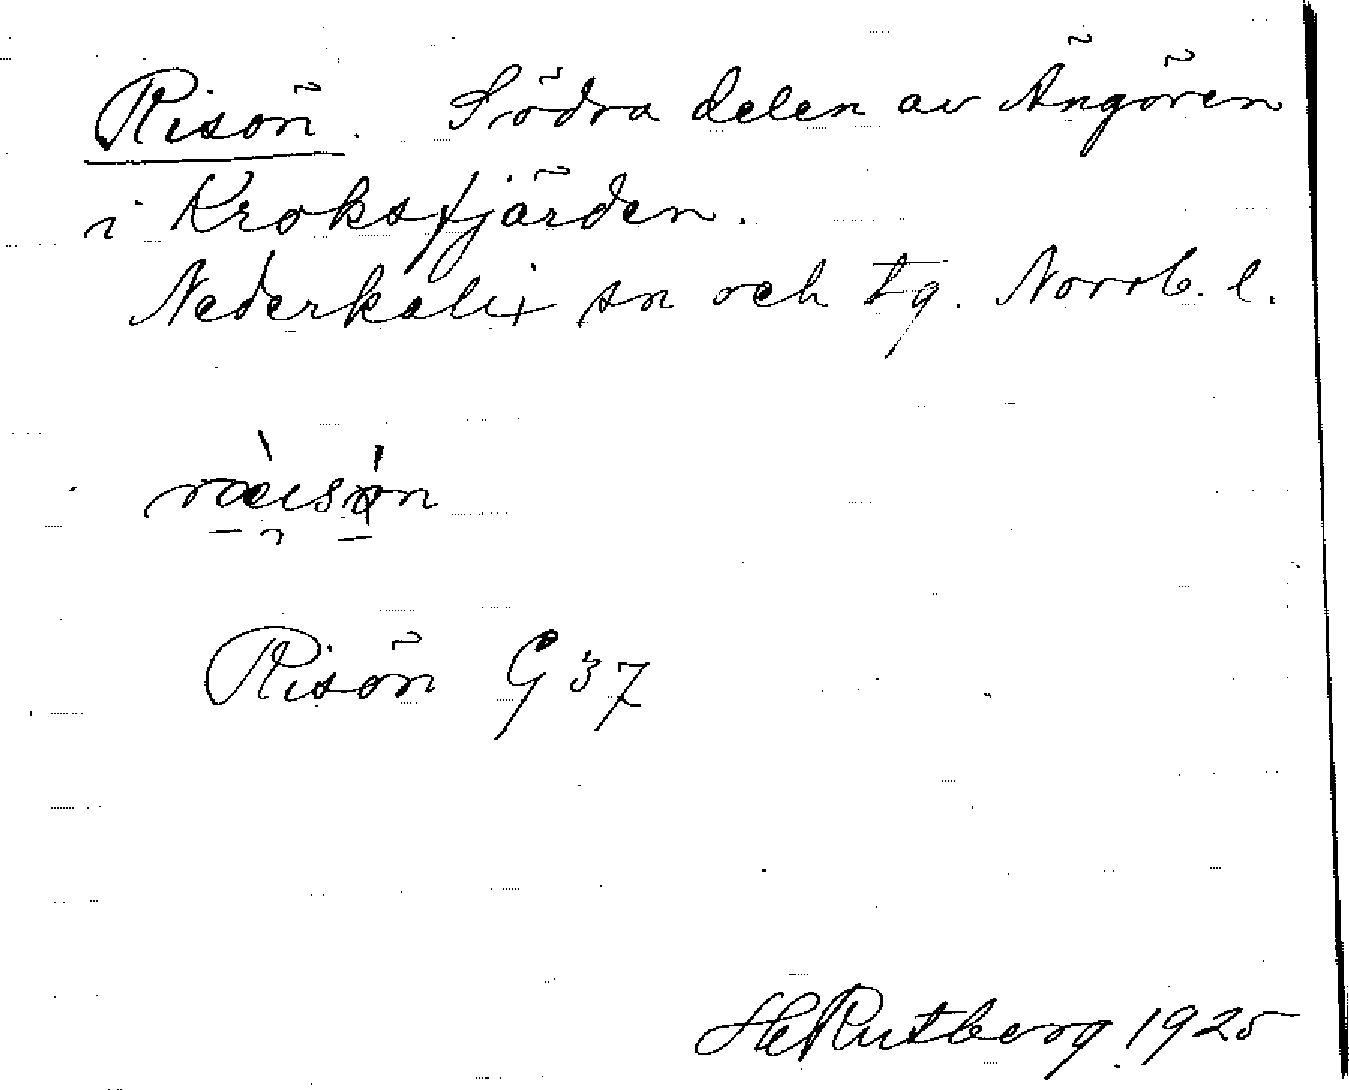 Risön. Södra delen av Ängören
i Kroksfjärden.
Nederkalix sn och tg. Norrb. l.
Risön G 37
H Rutberg 1925